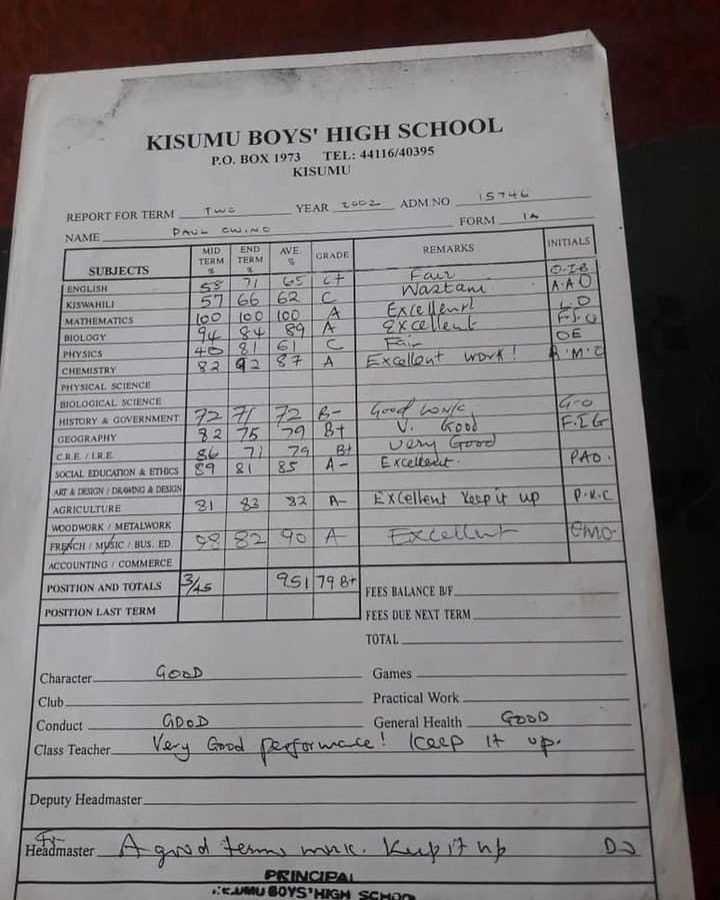 KISUMU BOYS' HIGH SCHOOL
P.O. BOX 1973 TEL: 44116/40395
KISUMU
REPORT FOR TERM TWO YEAR 2002 ADM.NO 15746
NAME PAUL OWINO FORM 1A
SUBJECTS MID TERM % END TERM % AVE. % GRADE REMARKS INITIALS
ENGLISH 58 71 65 C+ Fair
KISWAHILI 57 66 62 C Wastani A.A.O
MATHEMATICS 100 100 100 A Excellent L.D
BIOLOGY 94 84 89 A Excellent
PHYSICS 40 81 61 C Fair OE
CHEMISTRY 82 92 87 A Excellent work!
PHYSICAL SCIENCE
BIOLOGICAL SCIENCE
HISTORY & GOVERNMENT 72 71 72 B- Good work G.O
GEOGRAPHY 82 75 79 B+ V. Good F.I.G
C.R.E. / I.R.E. 86 71 79 B+ Very Good
SOCIAL EDUCATION & ETHICS 89 81 85 A- Excellent. PAO.
ART & DESIGN / DRAWING & DESIGN
AGRICULTURE 81 83 82 A- Excellent keep it up P.K.C
WOODWORK / METALWORK
FRENCH / MUSIC / BUS. ED. 98 82 90 A Excellent
ACCOUNTING / COMMERCE
POSITION AND TOTALS 3/45 951 79 B+ FEES BALANCE B/F
POSITION LAST TERM FEES DUE NEXT TERM
TOTAL
Character GOOD Games
Club Practical Work
Conduct GOOD General Health GOOD
Class Teacher Very Good performace! Keep it up.
Deputy Headmaster
Headmaster A good terms work. Keep it up
PRINCIPAL
KISUMU BOYS' HIGH SCHOO